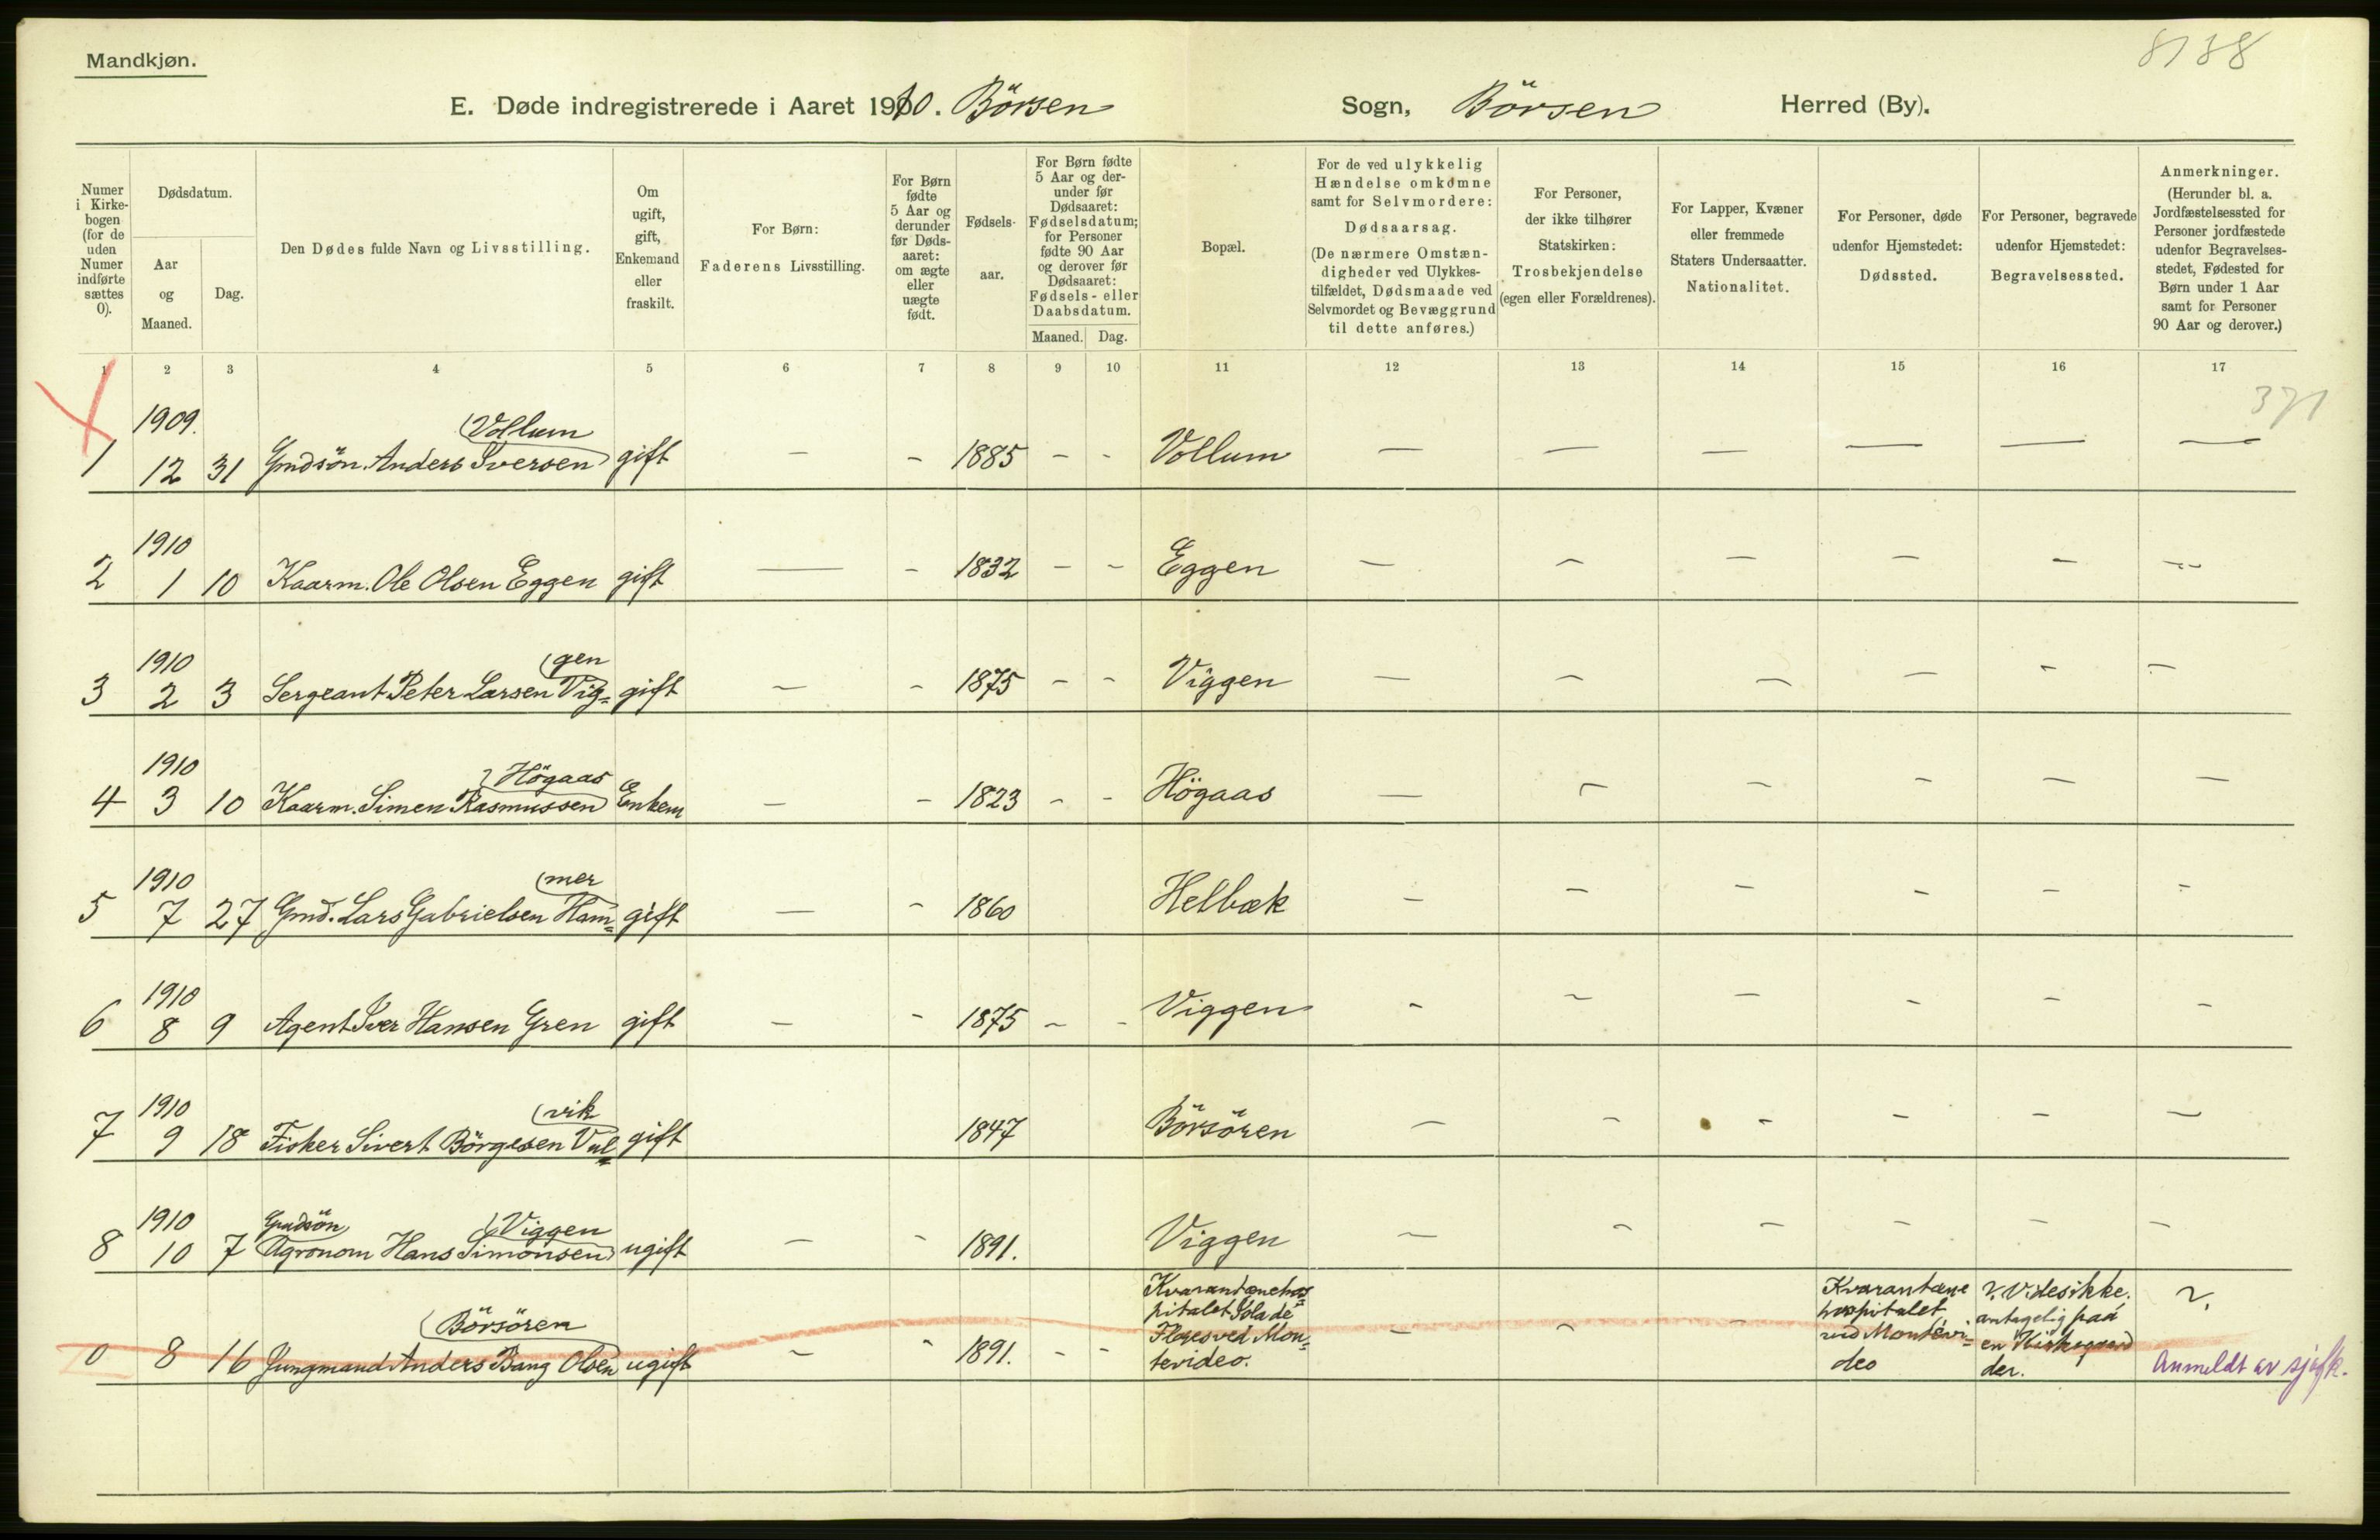 Mandkjøn.
8138
E. Døde indregistrerede i Aaret 1910. Börsen Sogn, Börsen Herred (By).
Numer i Kirkebogen (for de uden Numer indførte sættes 0).
Dødsdatum.
Aar og Maaned.
Dag.
Den Dødes fulde Navn og Livsstilling.
Om ugift, gift, Enkemand eller fraskilt.
For Børn: Faderens Livsstilling.
For Børn fødte 5 Aar og derunder før Dødsaaret: om ægte eller uægte født.
Fødselsaar.
For Børn fødte 5 Aar og derunder før Dødsaaret: Fødselsdatum; for Personer fødte 90 Aar og derover før Dødsaaret: Fødsels- eller Daabsdatum.
Maaned. Dag.
Bopæl.
For de ved ulykkelig Hændelse omkomne samt for Selvmordere: Dødsaarsag. (De nærmere Omstændigheder ved Ulykkestilfældet, Dødsmaade ved Selvmordet og Bevæggrund til dette anføres.)
For Personer, der ikke tilhører Statskirken: Trosbekjendelse (egen eller Forældrenes).
For Lapper, Kvæner eller fremmede Staters Undersaatter. Nationalitet.
For Personer, døde udenfor Hjemstedet: Dødssted.
For Personer, begravede udenfor Hjemstedet: Begravelsessted.
Anmerkninger. (Herunder bl. a. Jordfæstelsessted for Personer jordfæstede udenfor Begravelsesstedet, Fødested for Børn under 1 Aar samt for Personer 90 Aar og derover.)
1 2 3 4 5 6 7 8 9 10 11 12 13 14 15 16 17
371
1909. Vollum
1 12 31 Gmdsön Anders Iversen gift — - 1885 - - Vollum — — — — — —
1910
2 1 10 Kaarm. Ole Olsen Eggen gift — - 1832 - - Eggen — — — — — —
1910 gen
3 2 3 Sergeant Peter Larsen Vig= gift — - 1875 - - Viggen — — — — — —
1910 Högaas
4 3 10 Kaarm. Simen Rasmussen Enkem — - 1823 - - Högaas — — — — — —
1910 mer
5 7 27 Gmd. Lars Gabrielsen Ham= gift — - 1860 Helbæk — — — — — —
1910
6 8 9 Agent Iver Hansen Gren gift — - 1875 - - Viggen — — — — — —
1910 vik
7 9 18 Fisker Sivert Börgesen Vul= gift 1847 Börsören — — — — — —
1910 Gmdsön Viggen
8 10 7 Agronom Hans Simonsen ugift — - 1891. Viggen — — — — — —
Börsören
0 8 16 Jungmand Anders Bang Olsen ugift — - 1891. - -
Kvarantænehos=
pitalet Isla de
Flores ved Mon=
tevideo.
— — —
Kvarantæne
hospitalet
ved Montevi=
deo
?. Vides ikke.
antagelig paa
en Kirkegaard
der.
?.
Anmeldt av sjøfk.